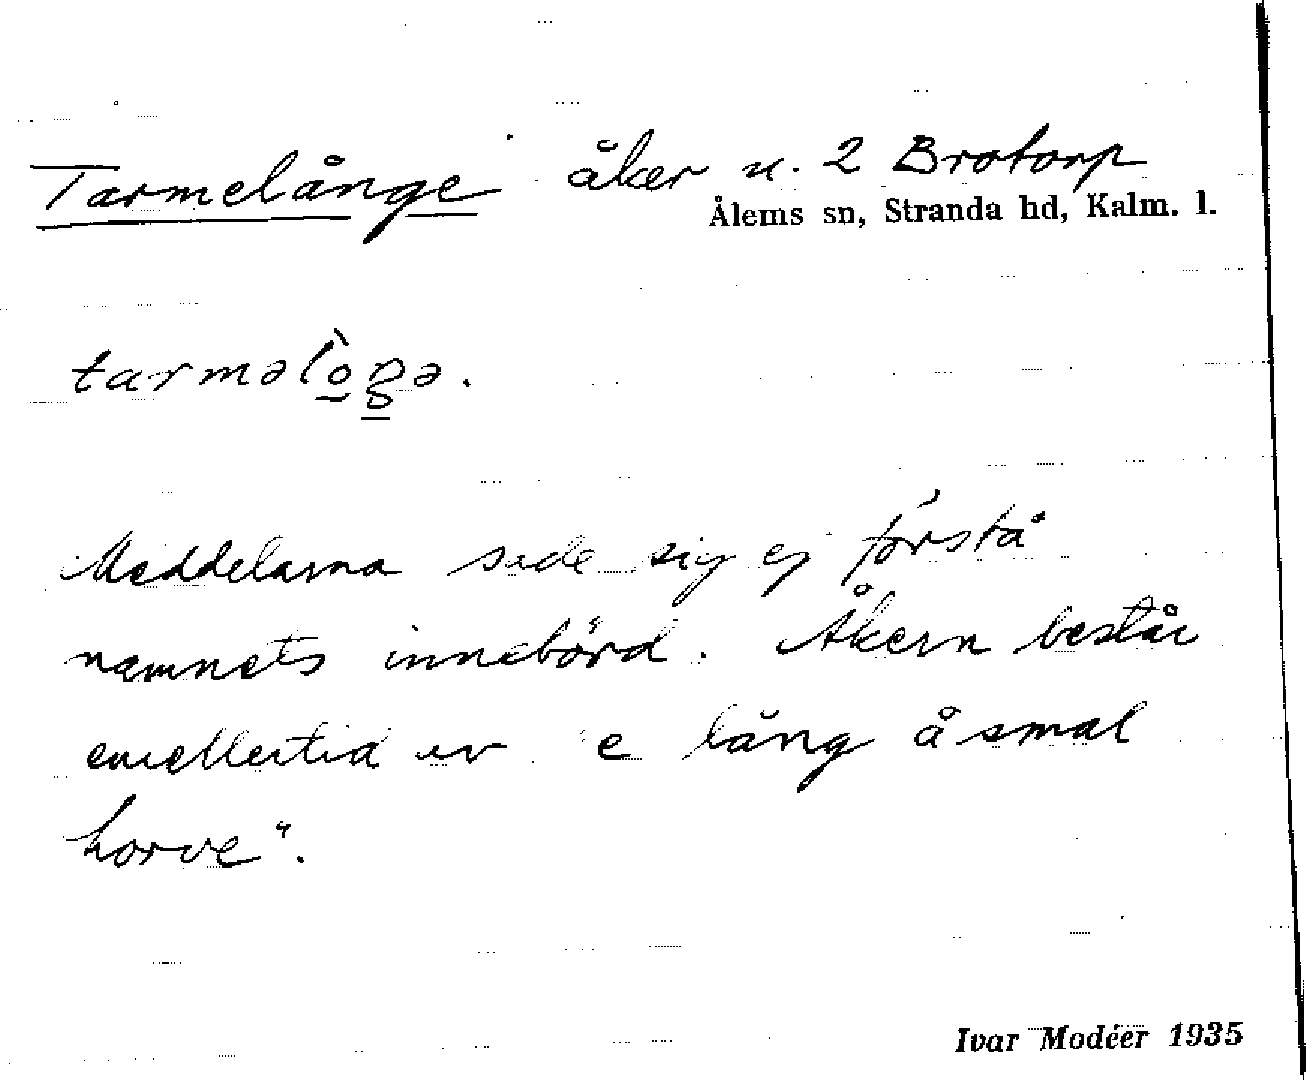 Tarmelånge åker u. 2 Brotorp
Ålems sn, Stranda hd, Kalm. l.
tarməlo̱g̱ə.
Meddelarna sade sig ej förstå
namnets innebörd. Åkern består
emellertid av "e lång å smal
horve".
Ivar Modéer 1935